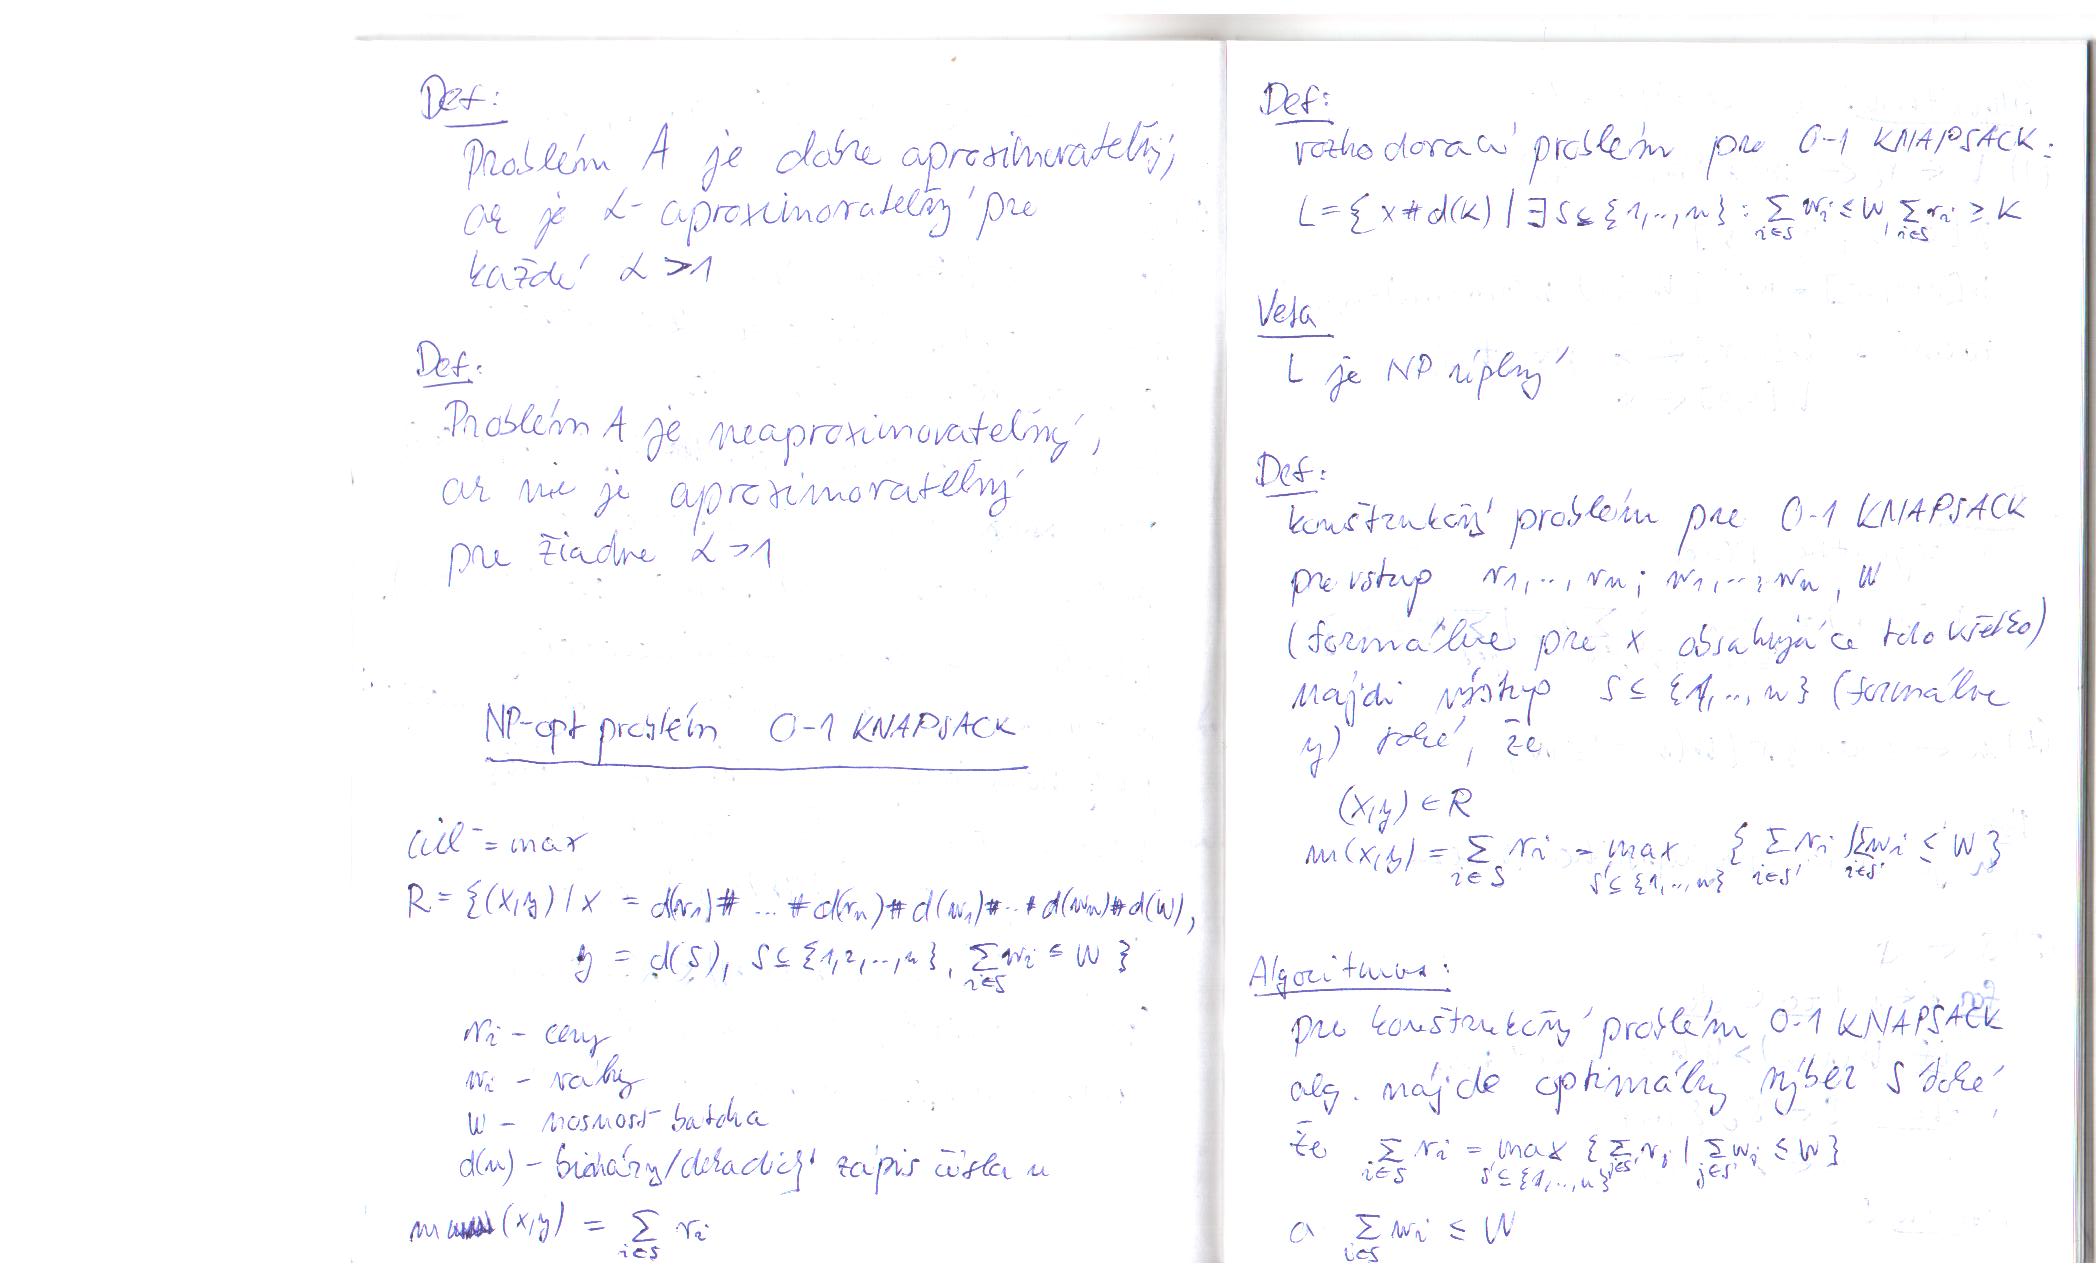 Def:
Problém A je dobre aproximovateľný,
ak je α-aproximovateľný pre
každé α > 1
Def:
Problém A je neaproximovateľný,
ak nie je aproximovateľný
pre žiadne α > 1
NP-opt problém 0-1 KNAPSACK
cieľ = max
R = {(x,y) | x = d(v₁)# ... #d(vₙ)#d(w₁)#...#d(wₙ)#d(W),
y = d(S), S ⊆ {1,2,...,n}, Σ_{i∈S} wᵢ ≤ W }
vᵢ - ceny
wᵢ - váhy
W - nosnosť batoha
d(n) - binárny/dekadický zápis čísla n
m(x,y) = Σ_{i∈S} vᵢ
Def:
rozhodovací problém pre 0-1 KNAPSACK:
L = { x # d(K) | ∃ S ⊆ {1,..,n} : Σ_{i∈S} wᵢ ≤ W, Σ_{i∈S} vᵢ ≥ K
Veta
L je NP úplný
Def:
konštrukčný problém pre 0-1 KNAPSACK
pre vstup v₁,..,vₙ; w₁,..,wₙ, W
(formálne pre x obsahujúce toto všetko)
nájdi výstup S ⊆ {1,..,n} (formálne
y) také, že
(x,y) ∈ R
m(x,y) = Σ_{i∈S} vᵢ = max_{S'⊆{1,..,n}} { Σ_{i∈S'} vᵢ | Σ_{i∈S'} wᵢ ≤ W }
Algoritmus:
pre konštrukčný problém 0-1 KNAPSACK
alg. nájde optimálny výber S také,
že Σ_{i∈S} vᵢ = max_{S'⊆{1,..,n}} { Σ_{j∈S'} vⱼ | Σ_{j∈S'} wⱼ ≤ W }
a Σ_{i∈S} wᵢ ≤ W